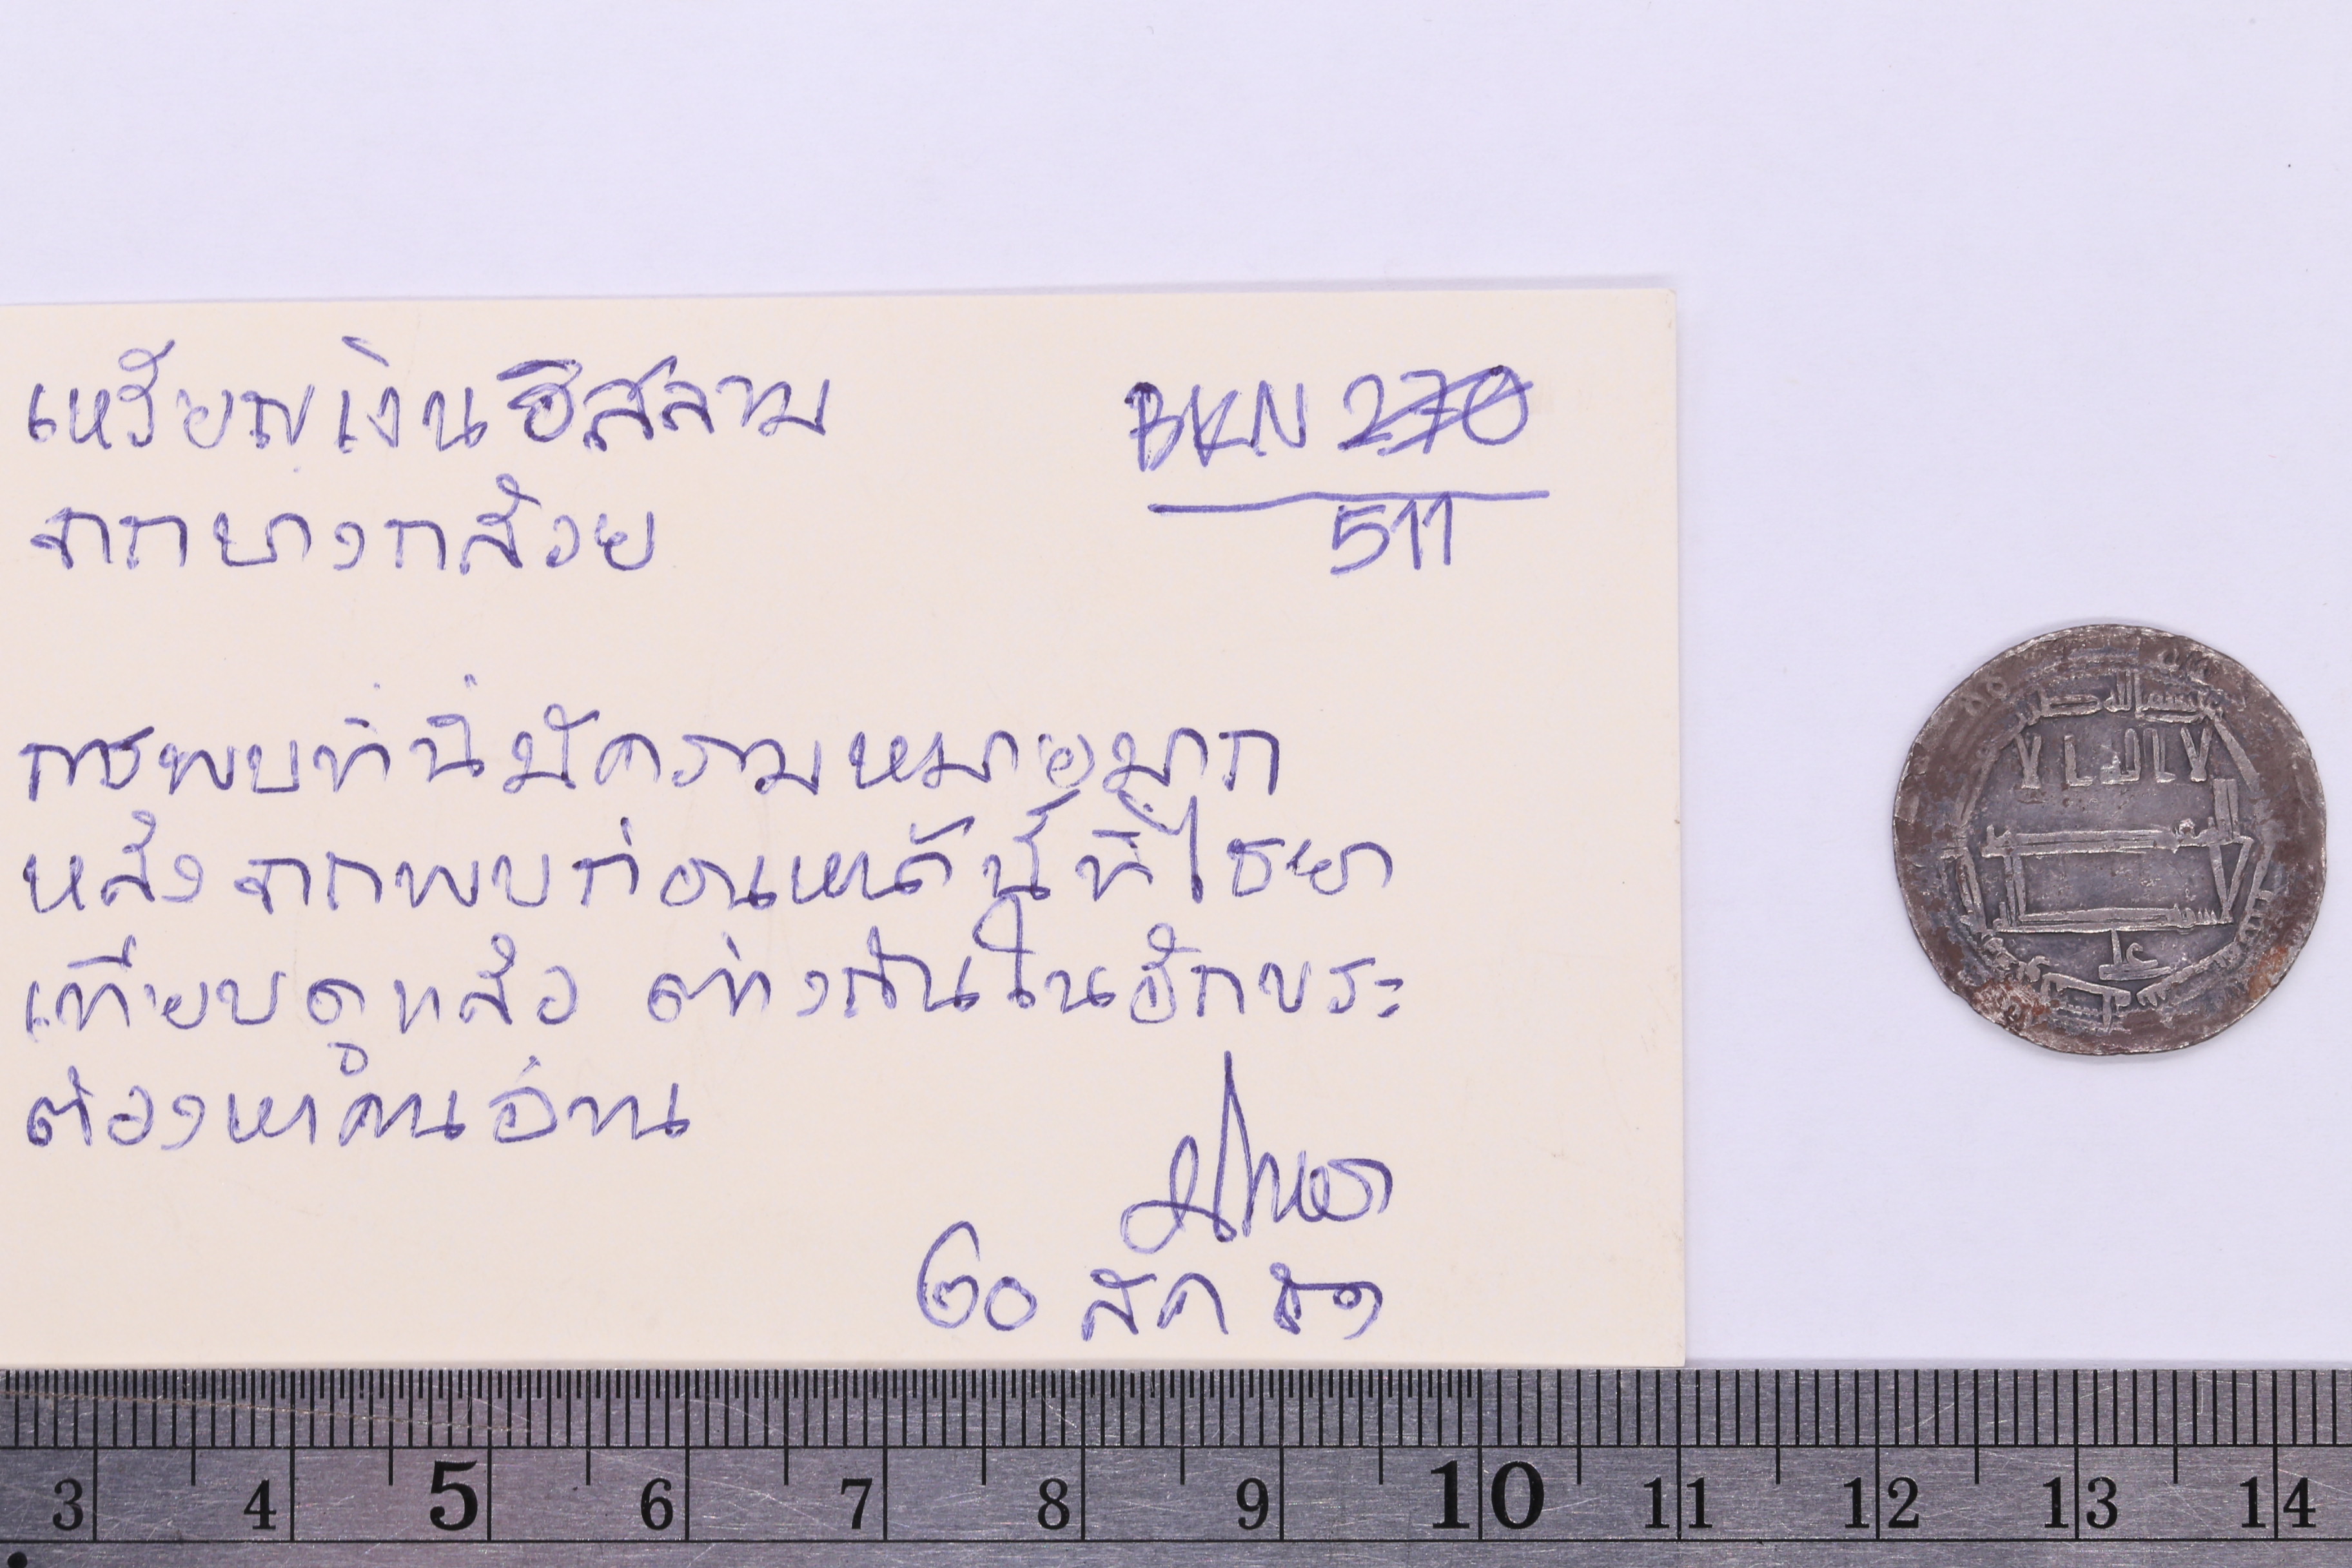 เหรียญเงินอิสลาม
จากบางกล้วย
BKN 270
511
การพบที่นี่มีความหมายมาก
หลังจากพบก่อนหน้านี้ที่ไชยา
เทียบดูแล้ว ต่างกันในอักขระ
ต้องหาคนอ่าน
๒๐ สค
3 4 5 6 7 8 9 10 11 12 13 14